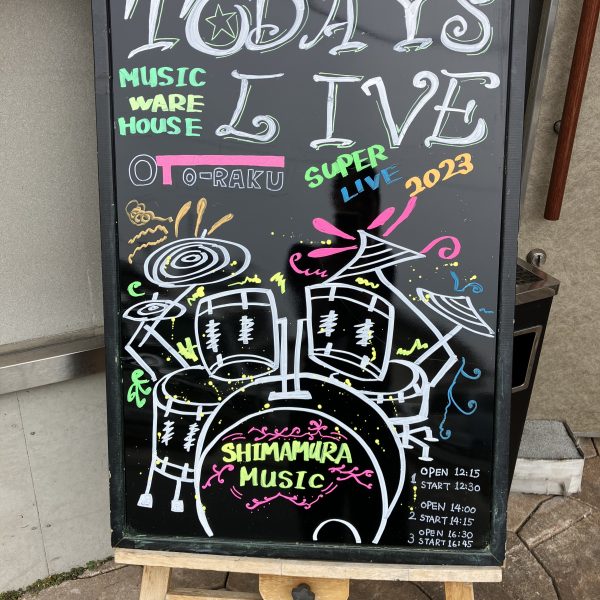 TODAYS
LIVE
MUSIC
WARE
HOUSE
OTO-RAKU
SUPER
LIVE 2023
SHIMAMURA
MUSIC
1 OPEN 12:15
START 12:30
2 OPEN 14:00
START 14:15
3 OPEN 16:30
START 16:45